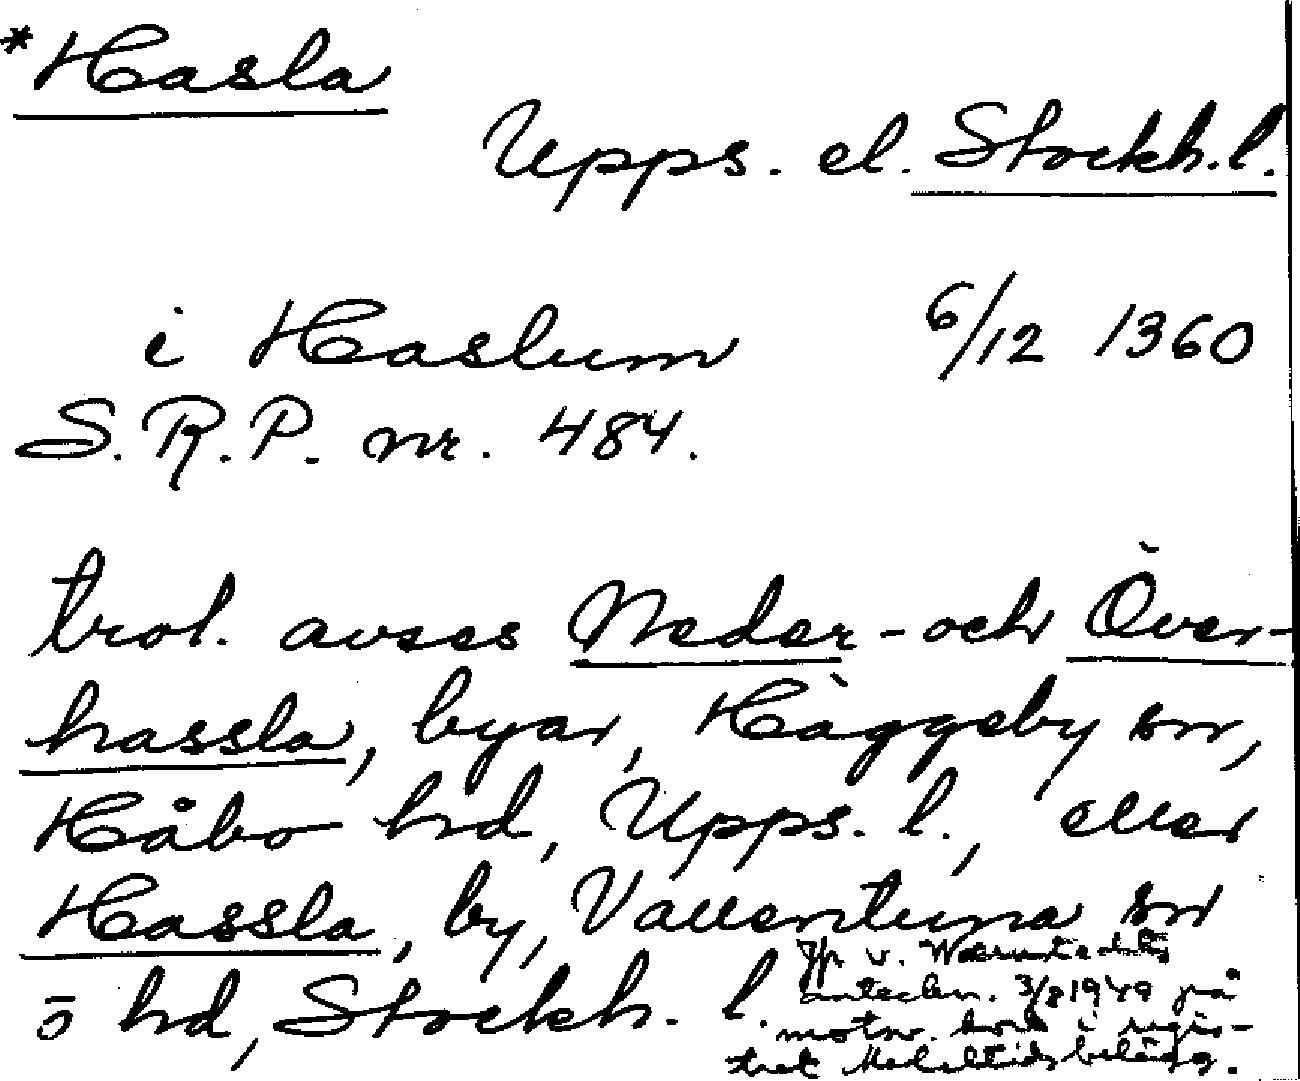 *Hasla
Upps. el. Stockh. l.
i Haslum 6/12 1360
S.R.P. nr. 484.
trol. avses Neder- och Över-
hassla, byar, Häggeby sn,
Håbo hd, Upps. l., eller
Hassla, by, Vallentuna sn
o hd, Stockh. l.
Jfr v. Wærnstedts
anteckn. 3/8 1949 på
motsv. kort i regis-
tret Medeltidsbelägg.